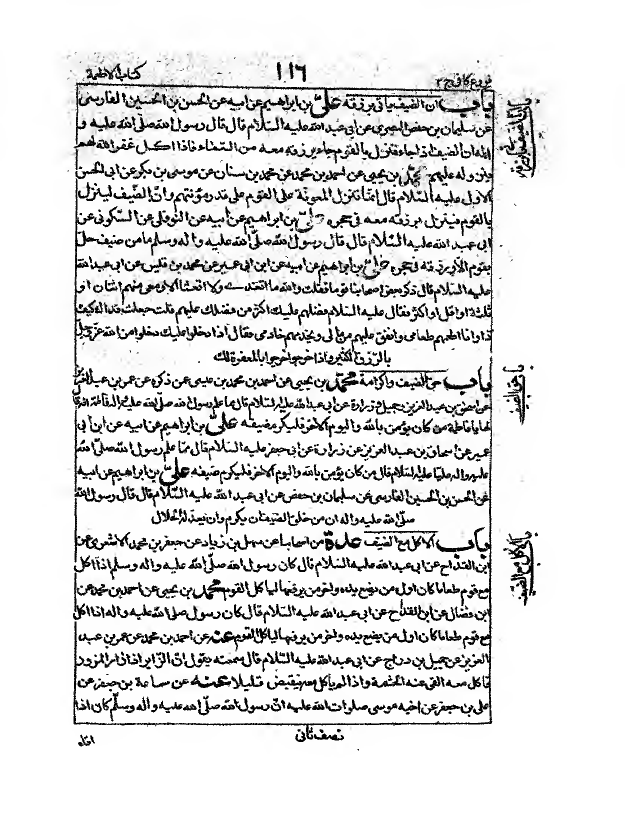 فروع کافی ج ۲
۱۱۶
کتاب الاطعمة
باب ان الضيف ياتي برزقه علي بن ابراهيم عن ابيه عن الحسن بن الحسين الفارسي
عن سليمان بن حفص البصري عن ابي عبد الله عليه السلام قال قال رسول الله صلى الله عليه و
اله ان الضيف اذا جاء فنزل بالقوم جاء برزقه معه من السماء فاذا اكل غفر الله لهم
بنزوله عليهم محمد بن يحيى عن احمد بن محمد عن محمد بن سنان عن موسى بن بكر عن ابي الحسن
الاول عليه السلام قال انما تنزل المعونة على القوم على قدر مؤنتهم وان الضيف لينزل
بالقوم فينزل رزقه معه في حجره علي بن ابراهيم عن ابيه عن النوفلي عن السكوني عن
ابي عبد الله عليه السلام قال قال رسول الله صلى الله عليه و اله وسلم ما من ضيف حل
بقوم الا ورزقه في حجره علي بن ابراهيم عن ابيه عن ابن ابي عمير عن محمد بن قيس عن ابي عبد الله
عليه السلام قال ذكر اصحابنا قوما فقلت والله ما اتغدى ولا اتعشى الا ومعي منهم اثنان او
ثلثة او اقل او اكثر فقال عليه السلام فضلهم عليك اكثر من فضلك عليهم قلت جعلت فداك كيف
ذا وانا اطعمهم طعامي وانفق عليهم من مالي ويخدمهم خادمي فقال اذا دخلوا عليك دخلوا من الله عز وجل
بالرزق الكثير واذا خرجوا خرجوا بالمغفرة لك
باب حق الضيف واكرامه محمد بن يحيى عن احمد بن محمد بن عيسى عن ذكره عن عمر بن عبد العزيز
عن اسحق بن عبد العزيز وجميل و زرارة عن ابي عبد الله عليه السلام قال مما علم رسول الله صلى الله عليه واله فاطمة ان قال
لها يا فاطمة من كان يؤمن بالله واليوم الاخر فليكرم ضيفه علي بن ابراهيم عن ابيه عن ابن ابي
عمير عن اسحاق بن عبد العزيز عن زرارة عن ابي جعفر عليه السلام قال مما علم رسول الله صلى الله
عليه واله عليا عليه السلام قال من كان يؤمن بالله واليوم الاخر فليكرم ضيفه علي بن ابراهيم عن ابيه
عن الحسن بن الحسين الفارسي عن سليمان بن حفص عن ابي عبد الله عليه السلام قال قال رسول الله
صلى الله عليه و اله ان من حق الضيف ان يكرم وان يعد له الخلال
باب الاكل مع الضيف عدة من اصحابنا عن سهل بن زياد عن جعفر بن محمد الاشعري عن
ابن القداح عن ابي عبد الله عليه السلام قال كان رسول الله صلى الله عليه و اله وسلم اذا اكل
مع قوم طعاما كان اول من يضع يده واخر من يرفعها لياكل القوم محمد بن يحيى عن احمد بن محمد عن
ابن فضال عن ابن القداح عن ابي عبد الله عليه السلام قال كان رسول الله صلى الله عليه و اله اذا اكل
مع قوم طعاما كان اول من يضع يده واخر من يرفعها لياكل القوم عنه عن احمد بن محمد عن عمر بن عبد
العزيز عن جميل بن دراج عن ابي عبد الله عليه السلام قال سمعته يقول ان الزائر اذا زار المزور
فاكل معه القى عنه الحشمة واذا لم ياكل معه ينقبض قليلا عنه عن
علي بن جعفر عن اخيه موسى صلوات الله عليه ان رسول الله صلى الله عليه و اله وسلم كان اذا
نصف ثاني
اتاه
باب حق الضيف
باب الاكل مع الضيف